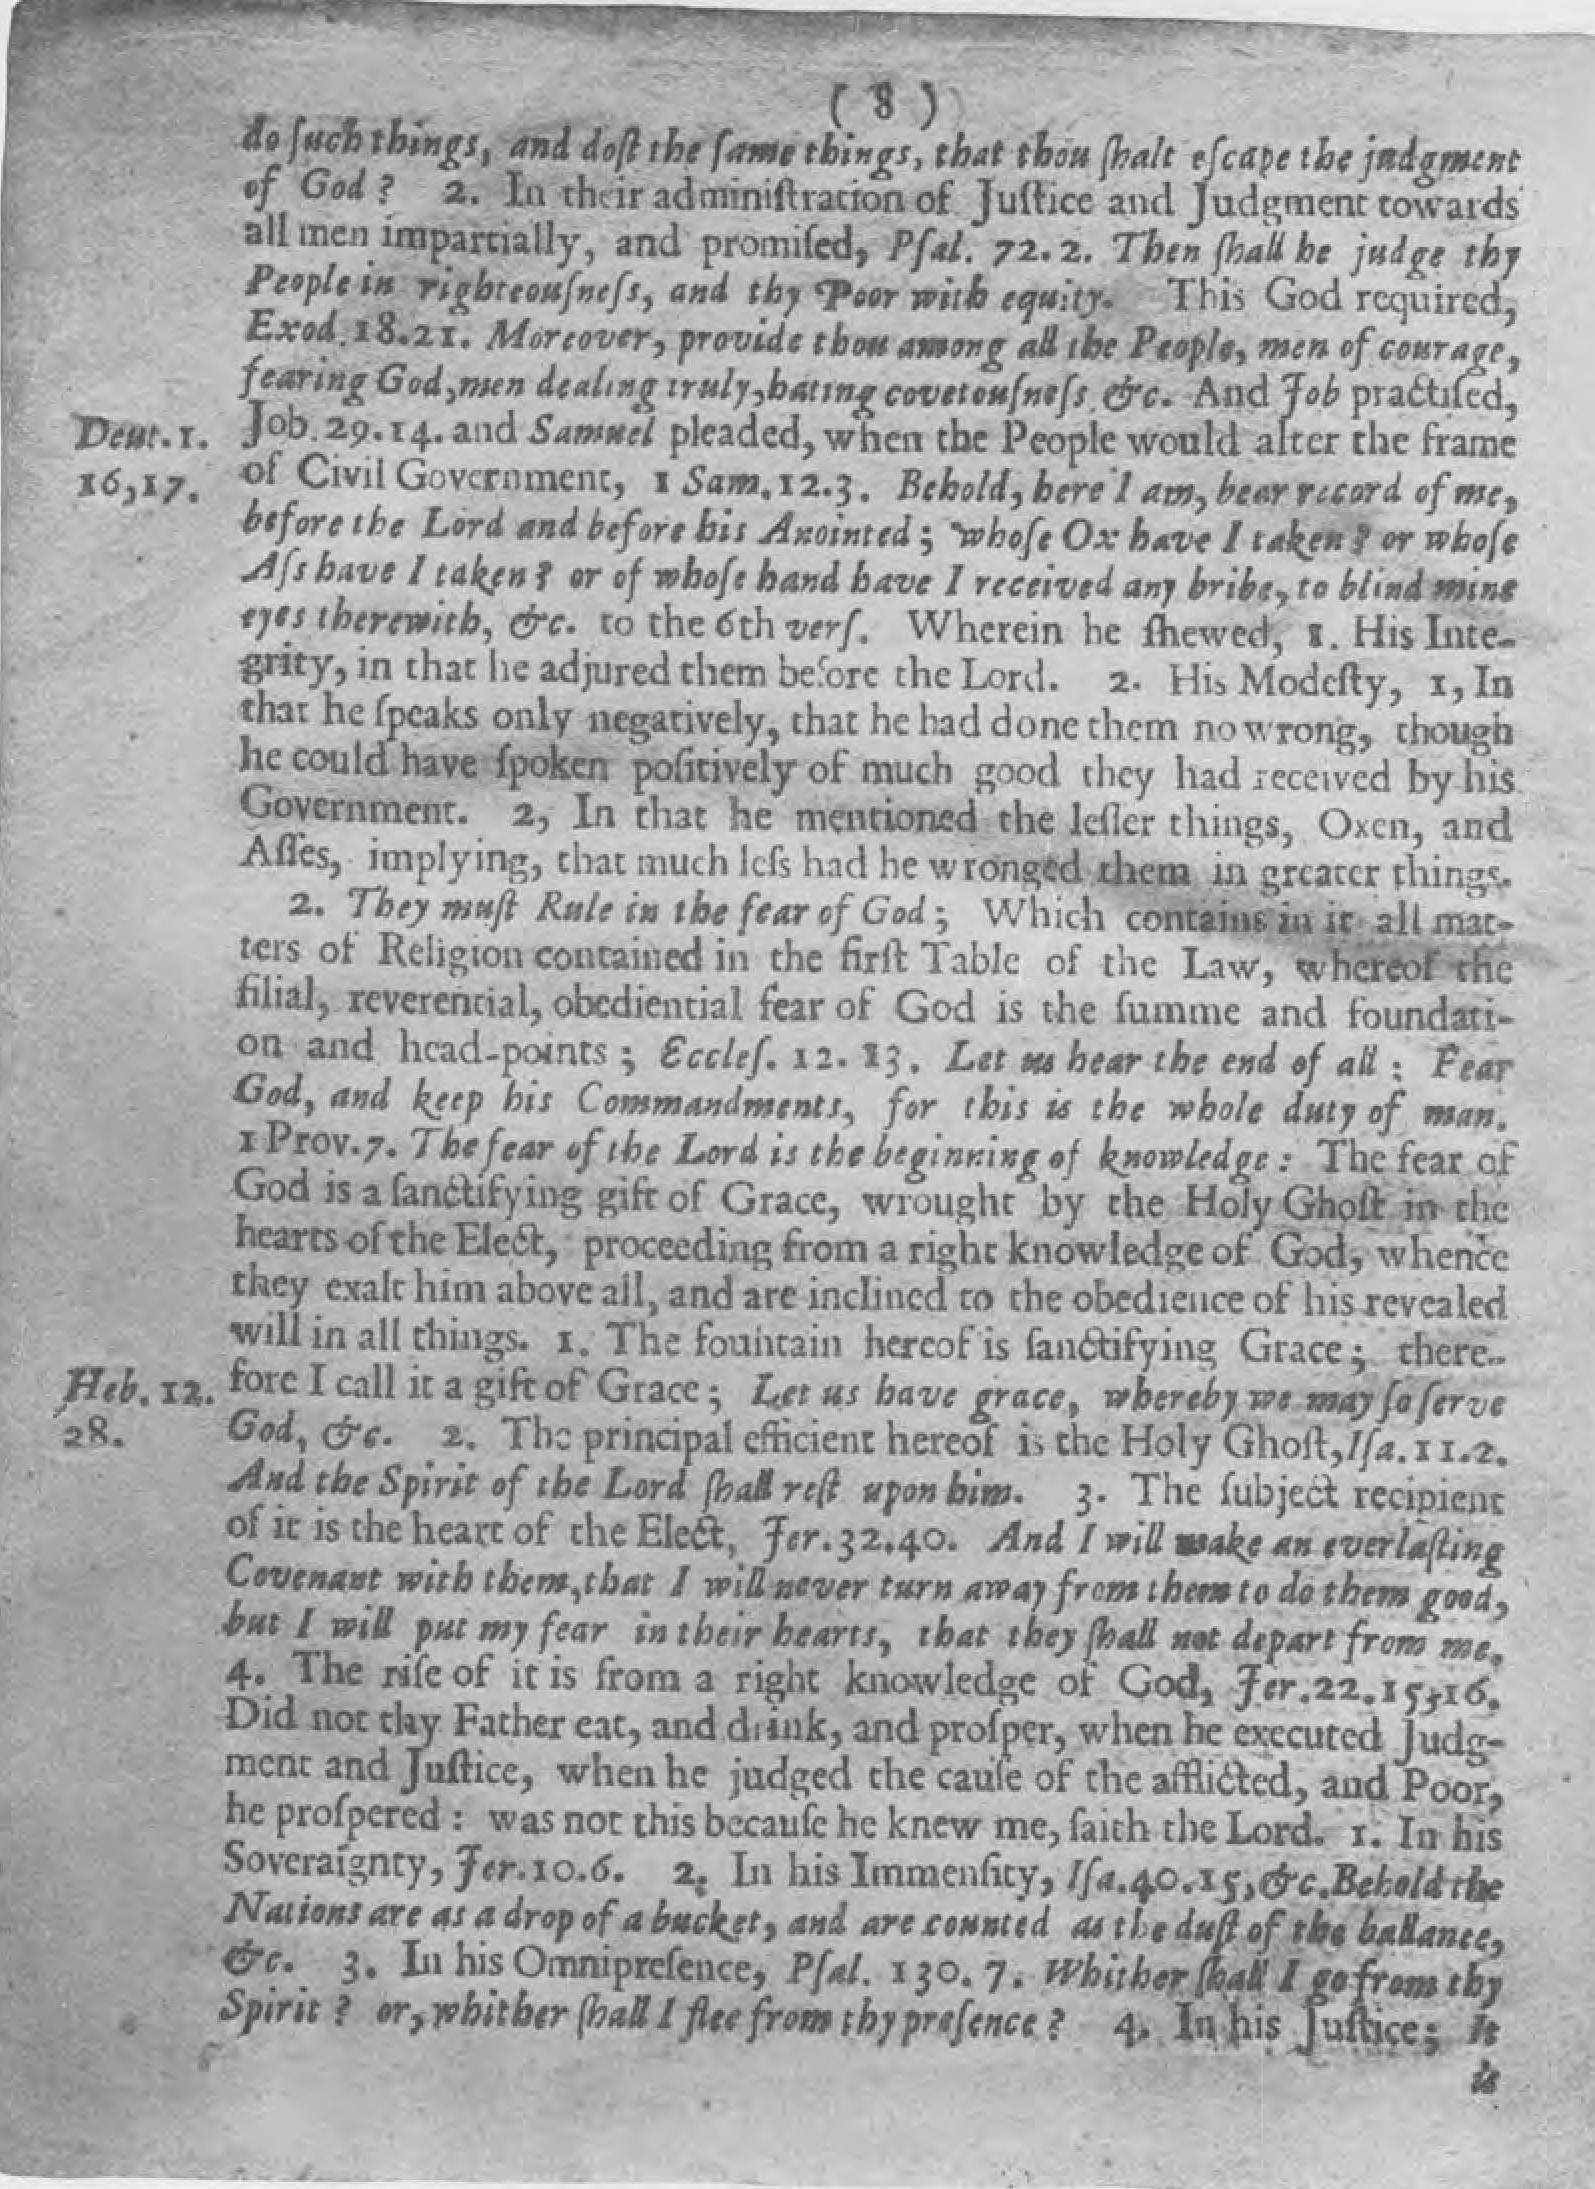 ( 8 )
do ſuch things, and doſt the ſame things, that thou ſhalt eſcape the judgment
of God? 2. In their adminiſtration of Juſtice and Judgment towards
all men impartially, and promiſed, Pſal. 72.2. Then ſhall he judge thy
People in righteouſneſs, and thy Poor with equity. This God required,
Exod. 18.21. Moreover, provide thou among all the People, men of courage,
fearing God, men dealing truly, hating covetouſneſs &c. And Job practiſed,
Deut. 1.
16, 17.
Job. 29.14. and Samuel pleaded, when the People would alter the frame
of Civil Government, 1 Sam. 12.3. Behold, here I am, bear record of me,
before the Lord and before his Anointed; whoſe Ox have I taken? or whoſe
Aſs have I taken? or of whoſe hand have I received any bribe, to blind mine
eyes therewith, &c. to the 6th verſ. Wherein he ſhewed, 1. His Inte-
grity, in that he adjured them before the Lord. 2. His Modeſty, 1, In
that he ſpeaks only negatively, that he had done them no wrong, though
he could have ſpoken poſitively of much good they had received by his
Government. 2, In that he mentioned the leſſer things, Oxen, and
Aſſes, implying, that much leſs had he wronged them in greater things.
2. They muſt Rule in the fear of God; Which contains in it all mat-
ters of Religion contained in the firſt Table of the Law, whereof the
filial, reverential, obediential fear of God is the ſumme and foundati-
on and head-points; Eccleſ. 12. 13. Let us hear the end of all: Fear
God, and keep his Commandments, for this is the whole duty of man.
1 Prov. 7. The fear of the Lord is the beginning of knowledge: The fear of
God is a ſanctifying gift of Grace, wrought by the Holy Ghoſt in the
hearts of the Elect, proceeding from a right knowledge of God, whence
they exalt him above all, and are inclined to the obedience of his revealed
will in all things. 1. The fountain hereof is ſanctifying Grace; there-
Heb. 12.
28.
fore I call it a gift of Grace; Let us have grace, whereby we may ſo ſerve
God, &c. 2. The principal efficient hereof is the Holy Ghoſt, Iſa. 11.2.
And the Spirit of the Lord ſhall reſt upon him. 3. The ſubject recipient
of it is the heart of the Elect, Jer. 32.40. And I will make an everlaſting
Covenant with them, that I will never turn away from them to do them good,
but I will put my fear in their hearts, that they ſhall not depart from me.
4. The riſe of it is from a right knowledge of God, Jer. 22.15,16.
Did not thy Father eat, and drink, and proſper, when he executed Judg-
ment and Juſtice, when he judged the cauſe of the afflicted, and Poor,
he proſpered: was not this becauſe he knew me, ſaith the Lord. 1. In his
Soveraignty, Jer. 10.6. 2. In his Immenſity, Iſa. 40.15, &c. Behold the
Nations are as a drop of a bucket, and are counted as the duſt of the ballance,
&c. 3. In his Omnipreſence, Pſal. 130. 7. Whither ſhall I go from thy
Spirit? or, whither ſhall I flee from thy preſence? 4. In his Juſtice; It
is